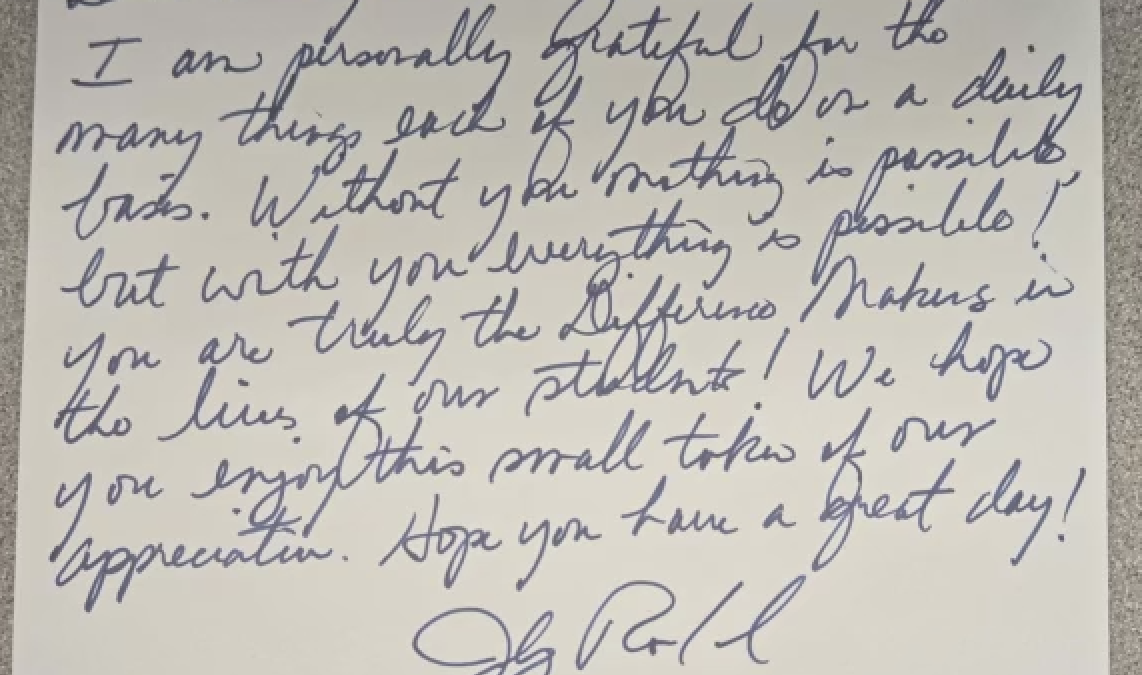 I am personally grateful for the
many things each of you do on a daily
basis. Without you nothing is possible
but with you everything is possible!
you are truly the Difference Makers in
the lives of our students! We hope
you enjoy this small token of our
appreciation. Hope you have a great day!